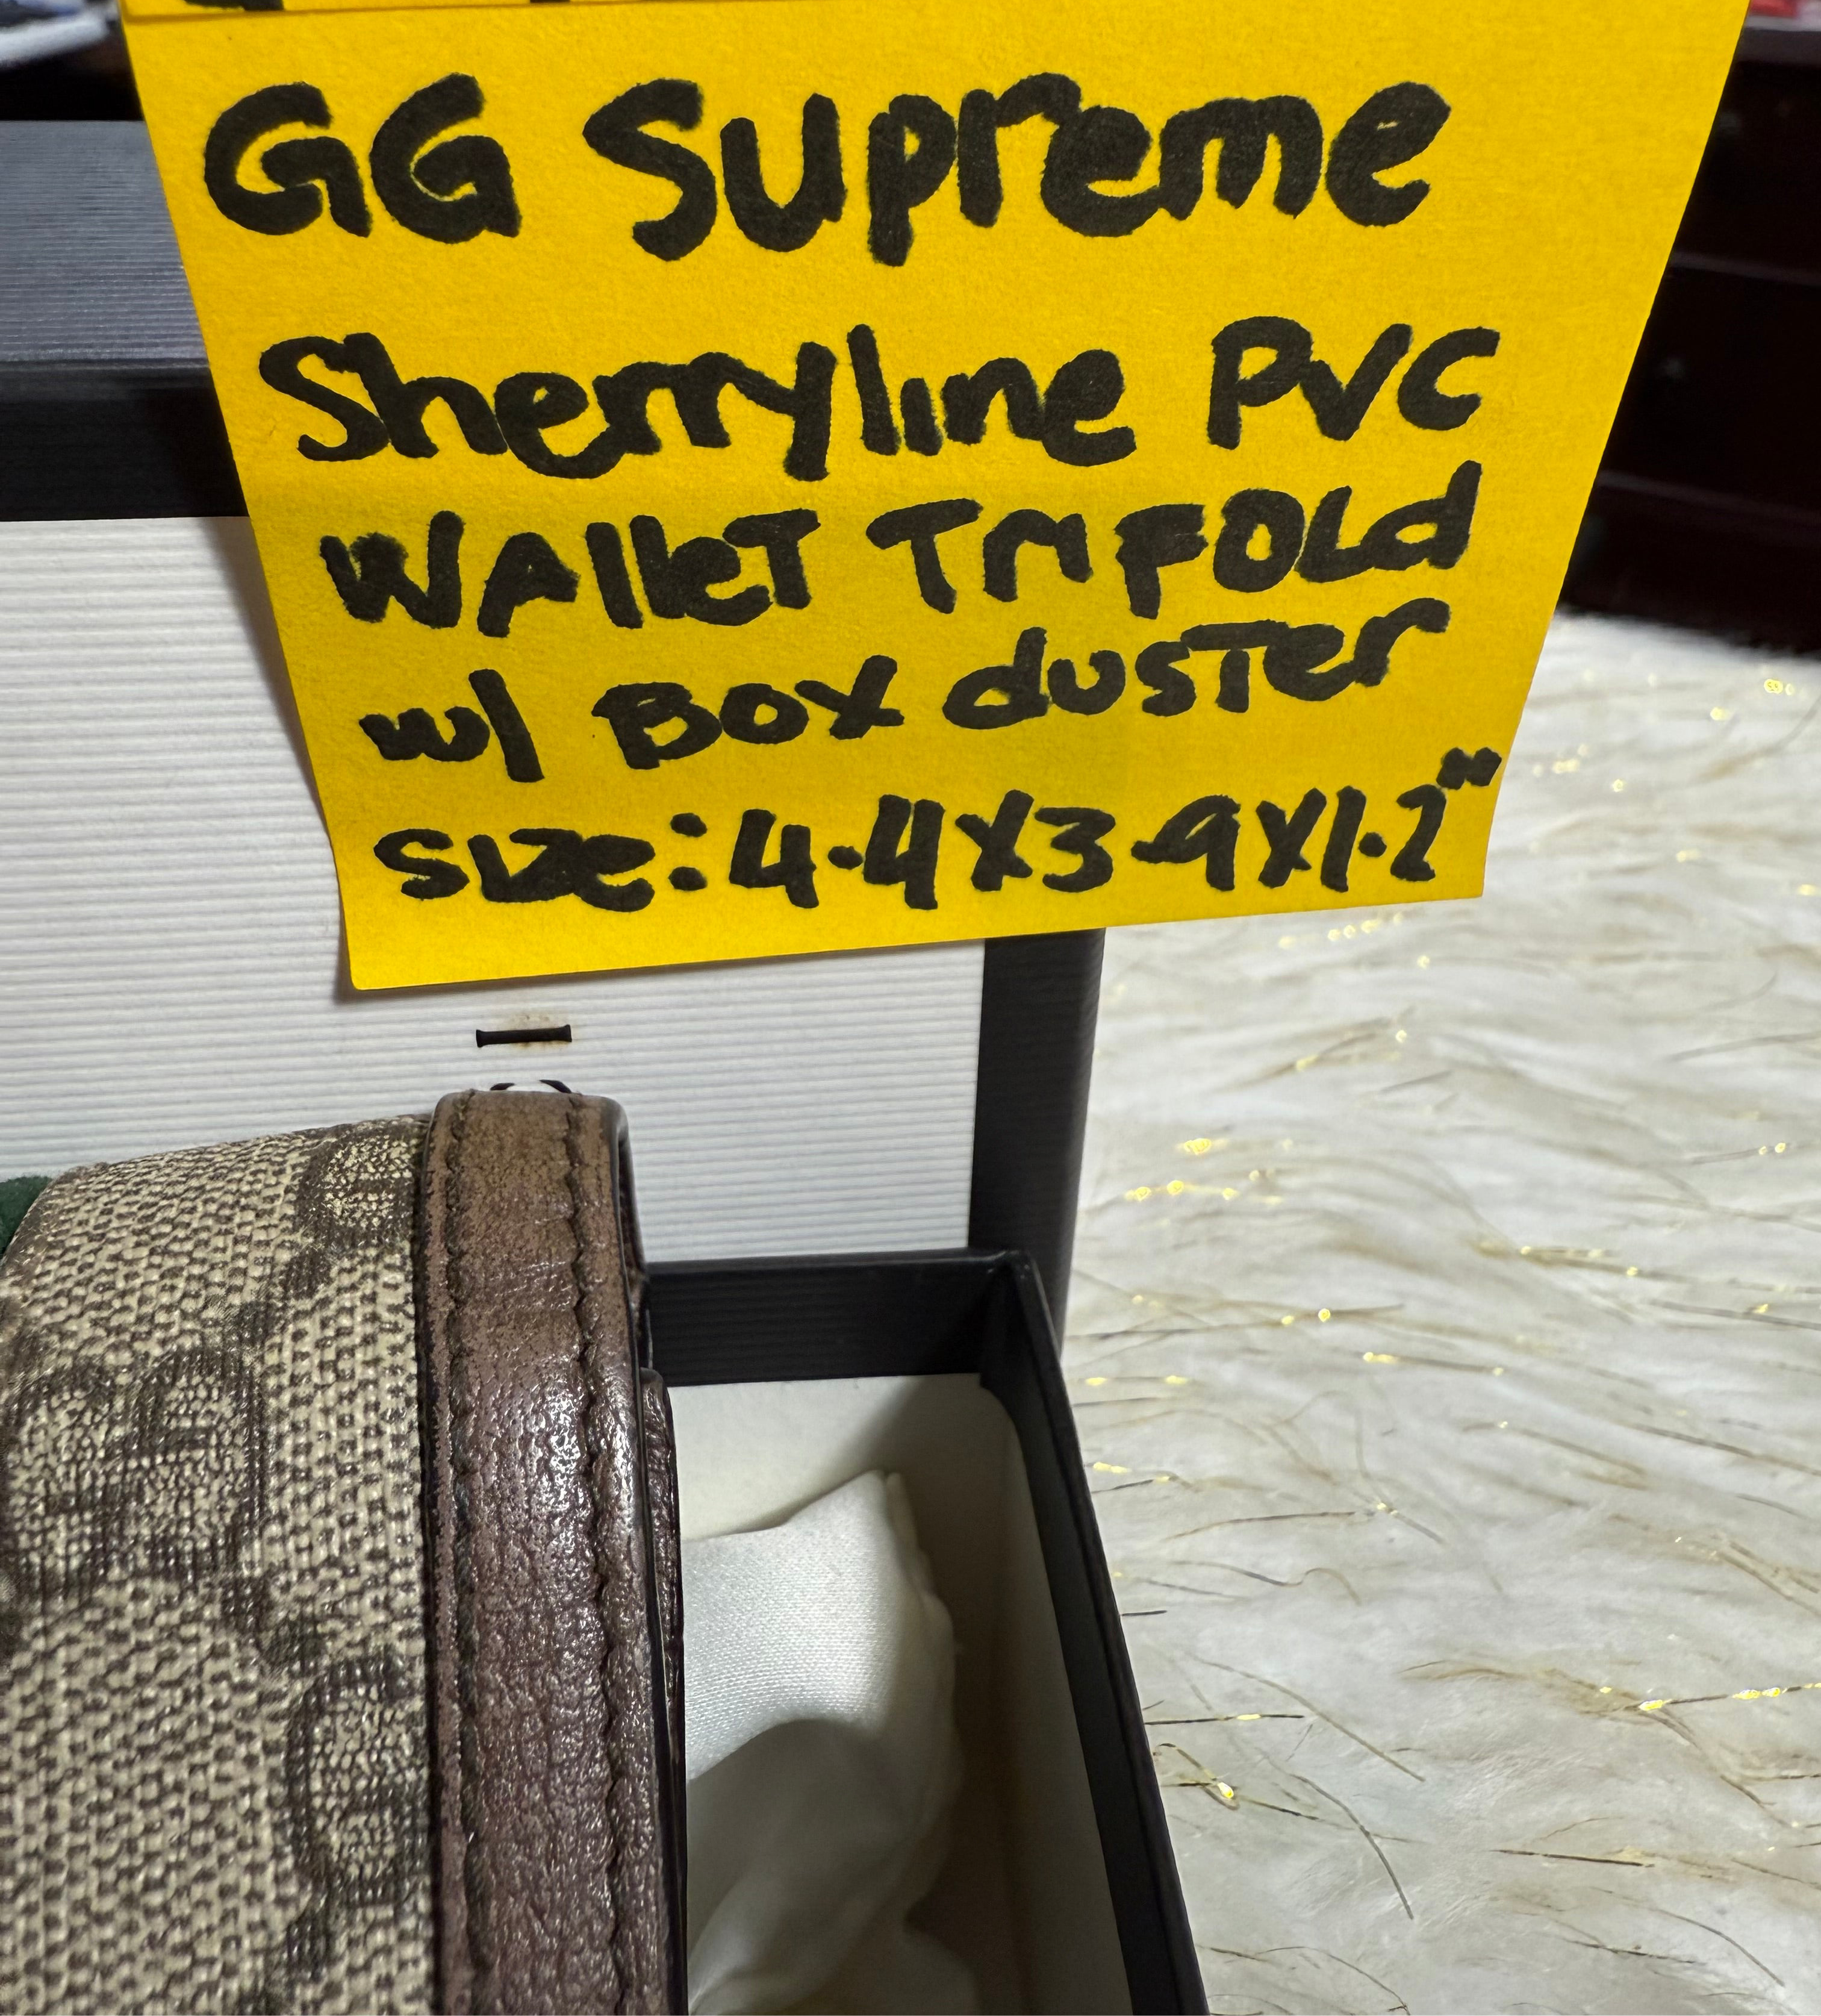 GG Supreme
Sherryline PVC
WAlleT TriFOLd
w/ BOX dusTer
size: 4.4X3.9X1.2"